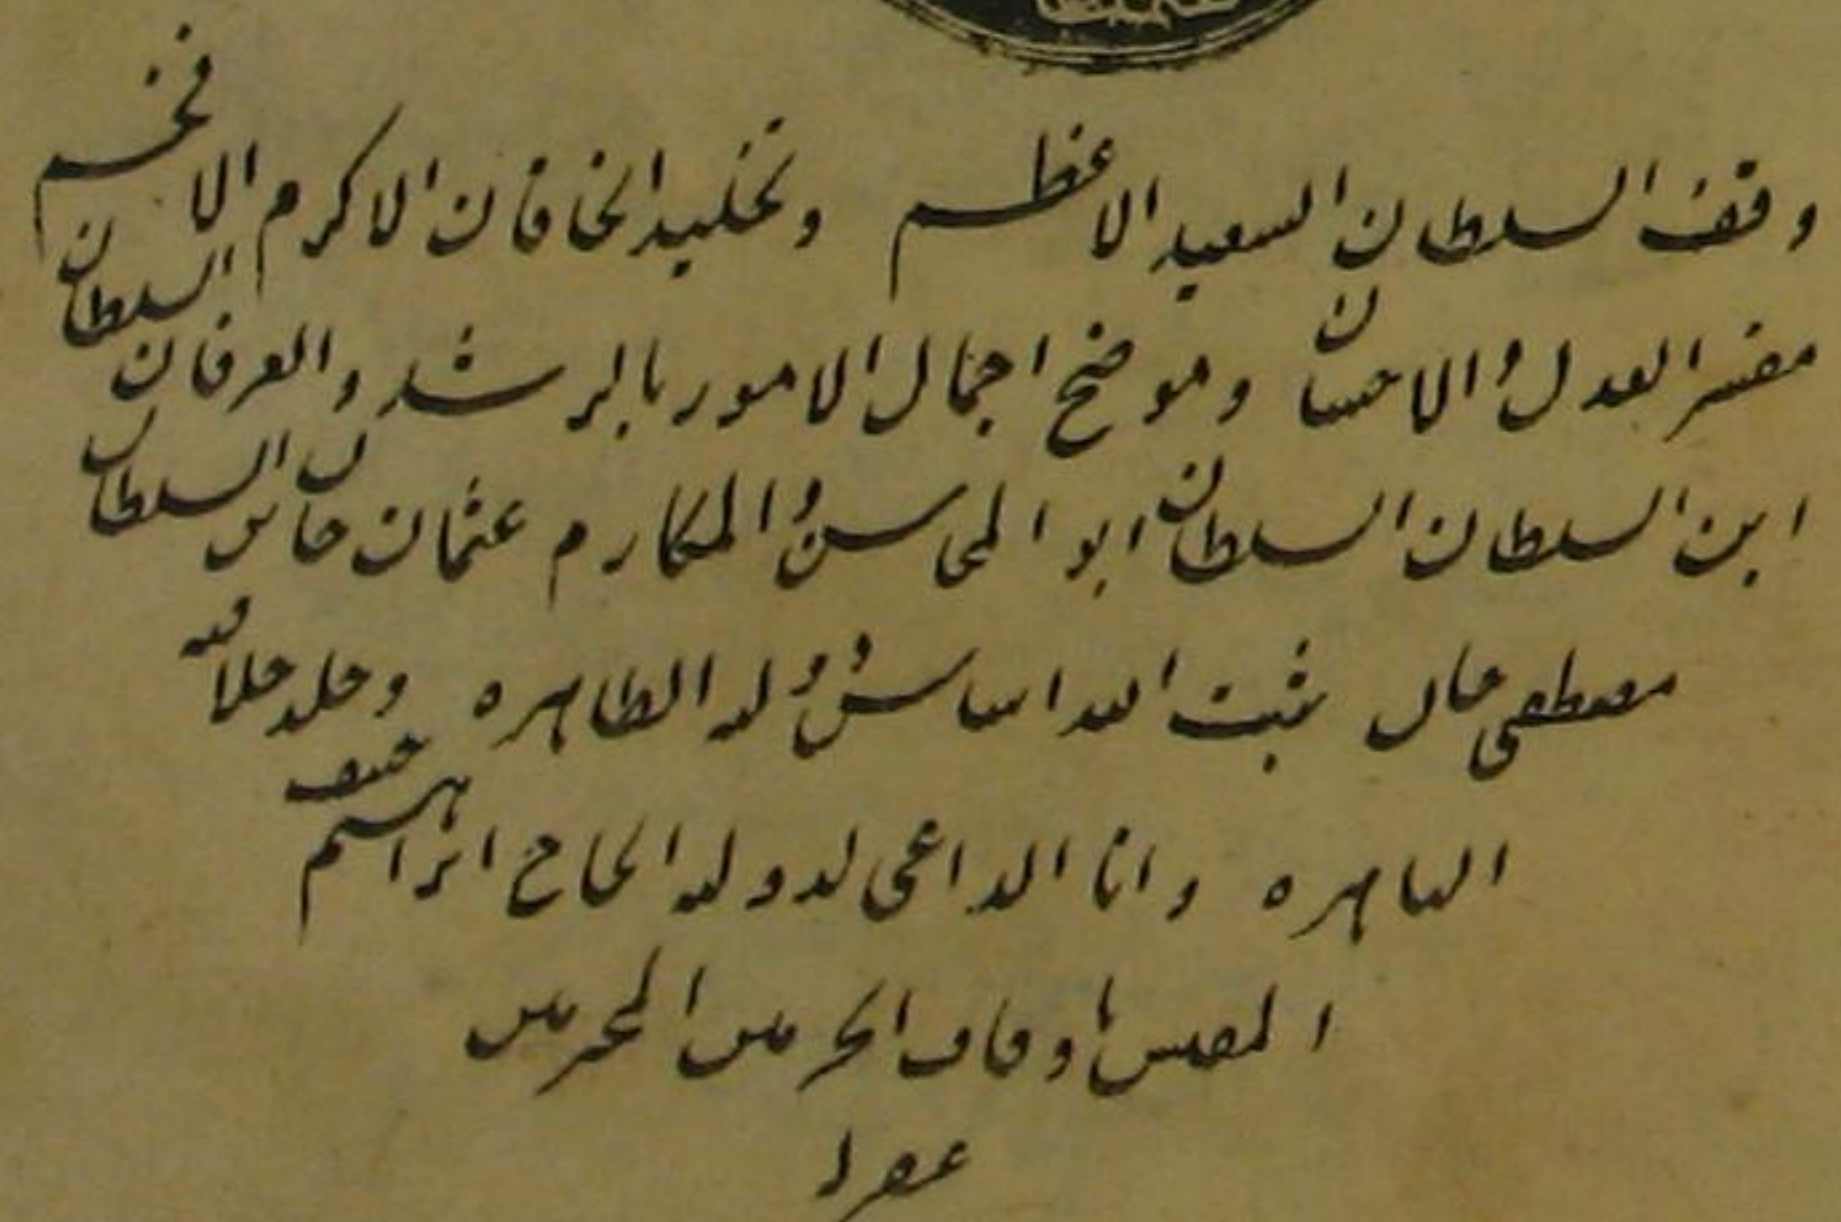 وقف السلطان السعيد الاعظم وتخليد الخاقان الاكرم الافخم
مفسر العدل والاحسان وموضح اجمال الامور بالرشد والعرفان السلطان
ابن السلطان السلطان ابو المحاسن والمكارم عثمان خان بن السلطان
مصطفى خان ثبت الله اساس دولته الطاهره وخلد خلافته
الباهره وانا الداعي لدولته الحاج ابراهيم حنيف
المفتش باوقاف الحرمين المحرمين
غفر له